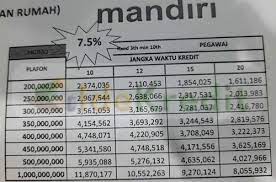 AN RUMAH) mandiri
7.5% fixed 3th min 10th PEGAWAI
PLAFON JANGKA WAKTU KREDIT
10 12 15 20
200,000,000 2,374,035 2,110,413 1,854,025 1,611,186
250,000,000 2,967,544 2,638,066 2,317,531 2,013,983
300,000,000 3,561,053 3,165,679 2,781,037 2,416,780
350,000,000 4,154,562 3,693,292 3,244,543
400,000,000 4,748,071 4,220,905 3,708,049 3,222,373
450,000,000 4,748,519 4,171,556 3,625,169
500,000,000 5,935,088 5,276,132 4,635,062 4,027,966
1,000,000,000 11,870,177 9,270,124 8,055,932